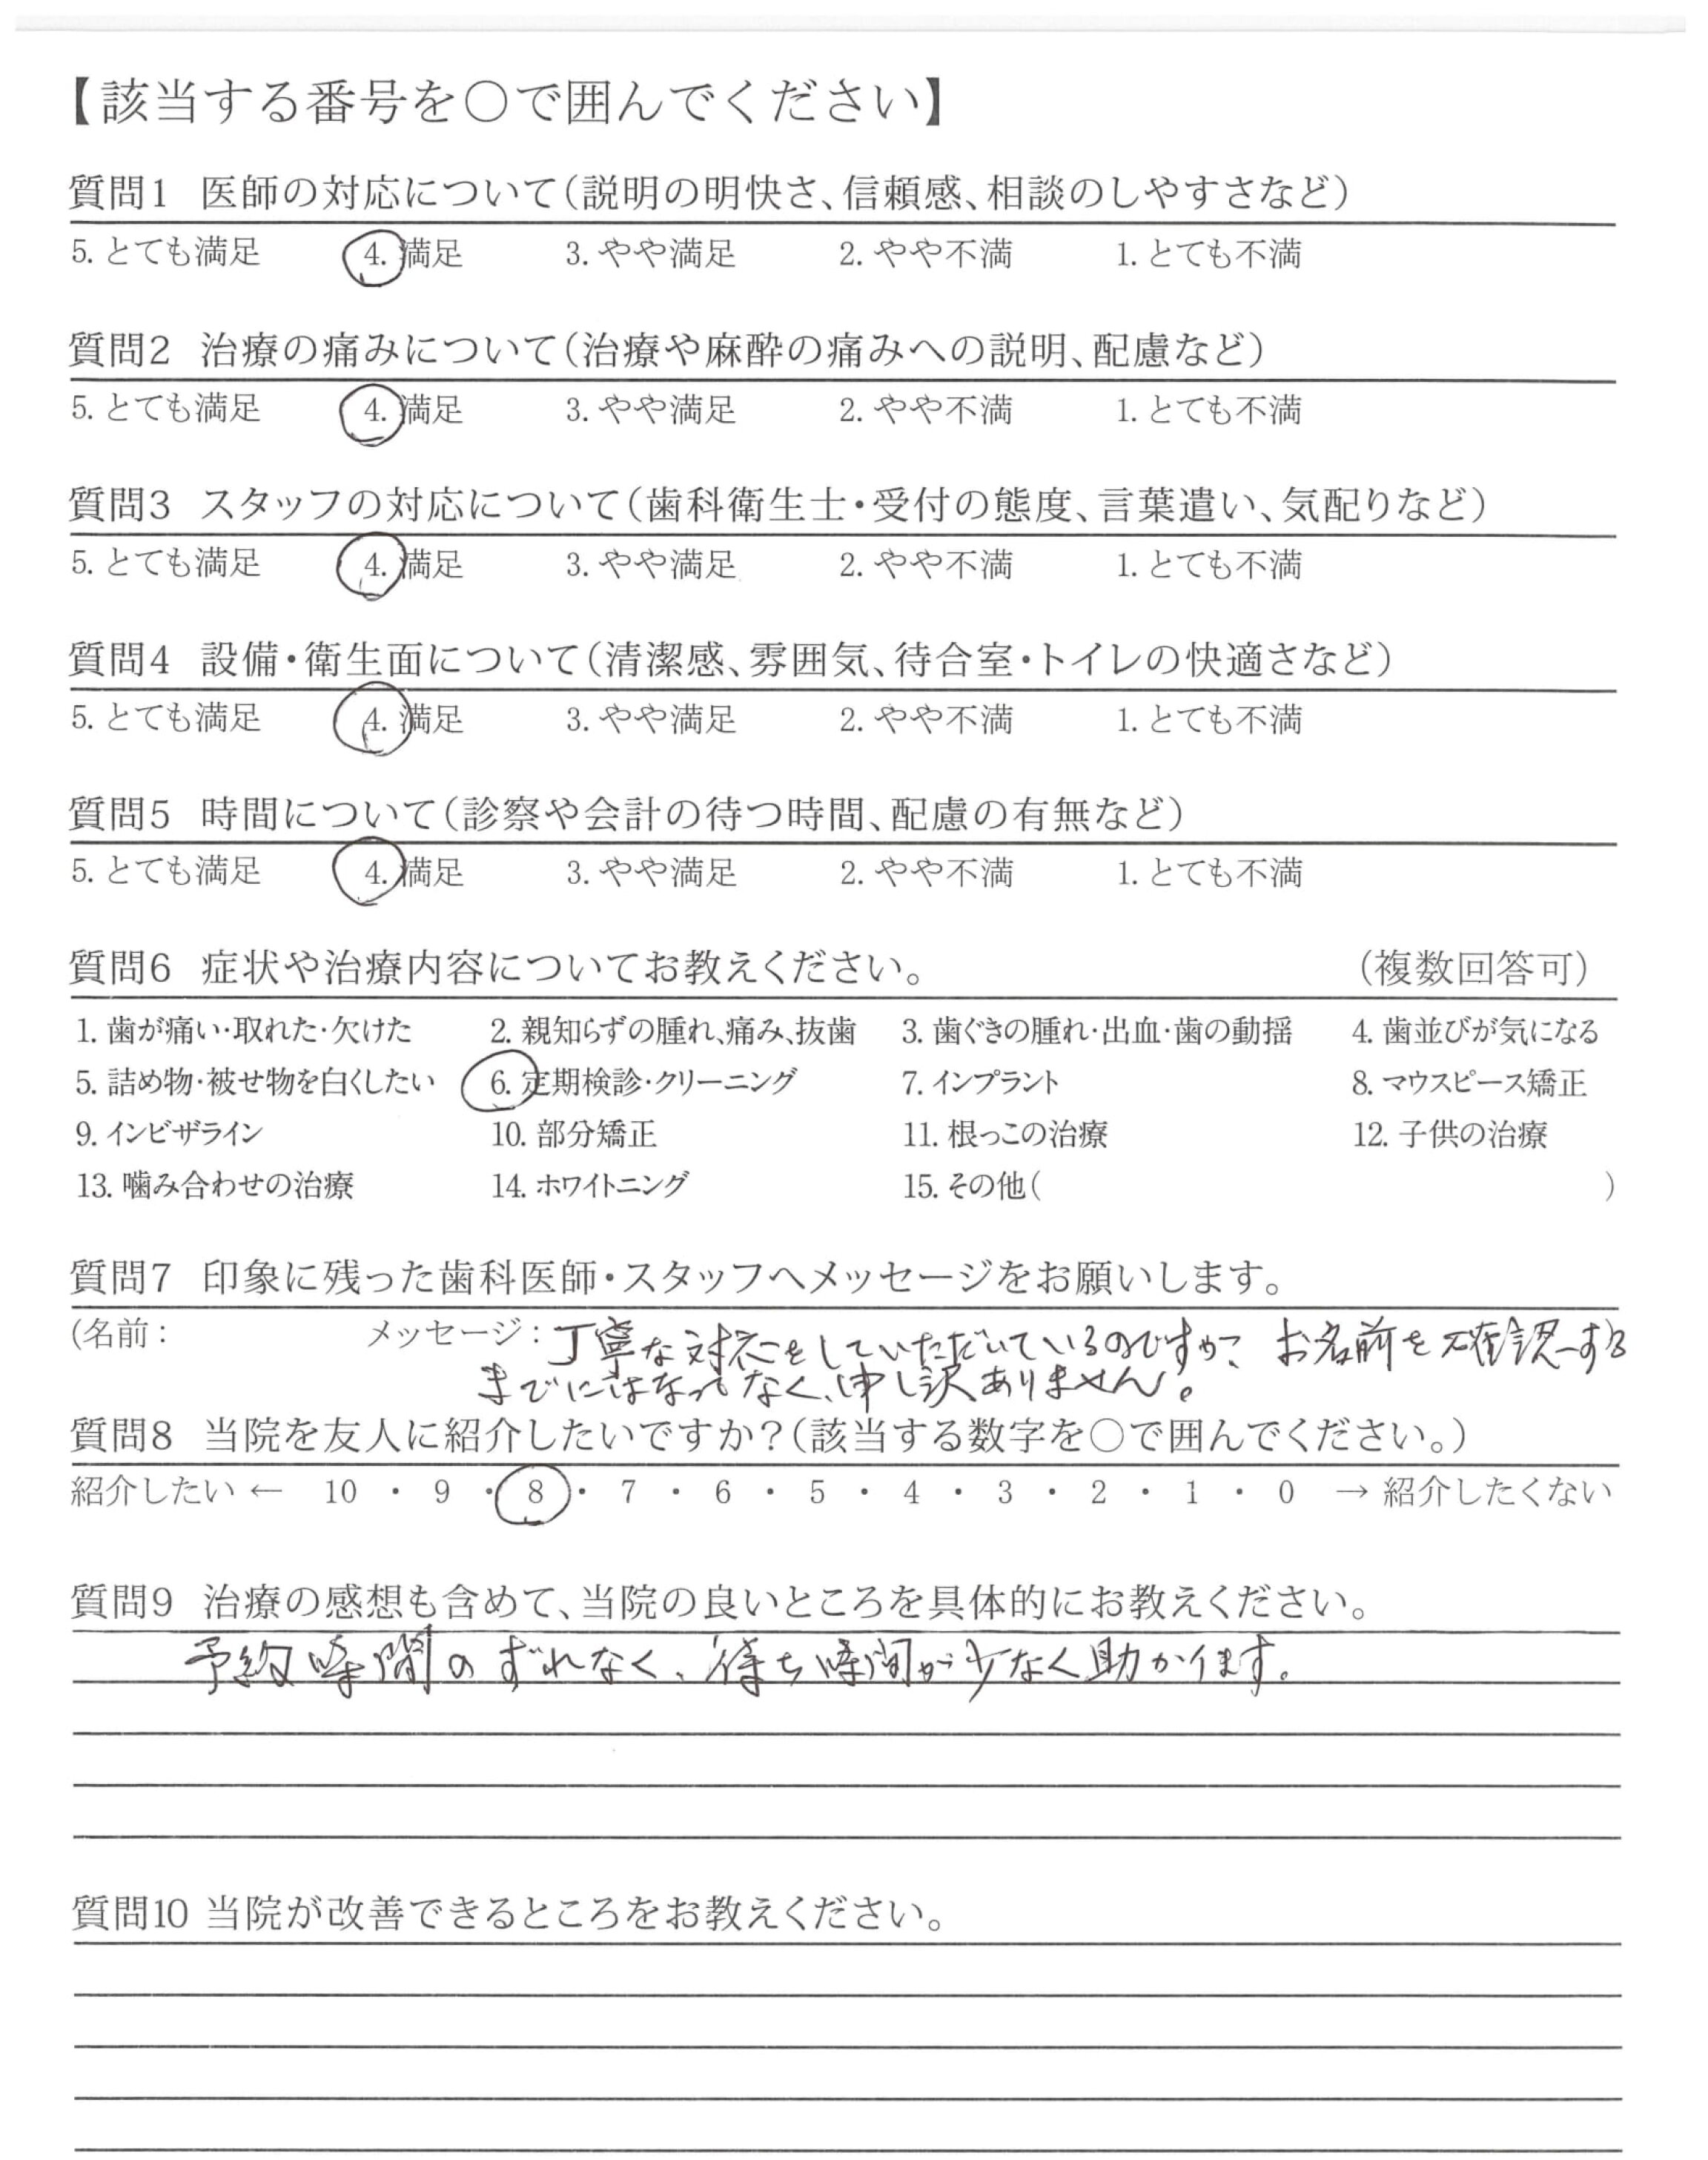 【該当する番号を○で囲んでください】
質問1 医師の対応について(説明の明快さ、信頼感、相談のしやすさなど)
5. とても満足 4. 満足 3. やや満足 2. やや不満 1. とても不満
質問2 治療の痛みについて(治療や麻酔の痛みへの説明、配慮など)
5. とても満足 4. 満足 3. やや満足 2. やや不満 1. とても不満
質問3 スタッフの対応について(歯科衛生士・受付の態度、言葉遣い、気配りなど)
5. とても満足 4. 満足 3. やや満足 2. やや不満 1. とても不満
質問4 設備・衛生面について(清潔感、雰囲気、待合室・トイレの快適さなど)
5. とても満足 4. 満足 3. やや満足 2. やや不満 1. とても不満
質問5 時間について(診察や会計の待つ時間、配慮の有無など)
5. とても満足 4. 満足 3. やや満足 2. やや不満 1. とても不満
質問6 症状や治療内容についてお教えください。 (複数回答可)
1. 歯が痛い・取れた・欠けた 2. 親知らずの腫れ、痛み、抜歯 3. 歯ぐきの腫れ・出血・歯の動揺 4. 歯並びが気になる
5. 詰め物・被せ物を白くしたい 6. 定期検診・クリーニング 7. インプラント 8. マウスピース矯正
9. インビザライン 10. 部分矯正 11. 根っこの治療 12. 子供の治療
13. 噛み合わせの治療 14. ホワイトニング 15. その他( )
質問7 印象に残った歯科医師・スタッフへメッセージをお願いします。
(名前: メッセージ: 丁寧な対応をしていただいているのですが、お名前を確認する
までにはなってなく、申し訳ありません。
質問8 当院を友人に紹介したいですか?(該当する数字を○で囲んでください。)
紹介したい ← 10 ・ 9 ・ 8 ・ 7 ・ 6 ・ 5 ・ 4 ・ 3 ・ 2 ・ 1 ・ 0 → 紹介したくない
質問9 治療の感想も含めて、当院の良いところを具体的にお教えください。
予約時間のずれなく、待ち時間が少なく助かります。
質問10 当院が改善できるところをお教えください。